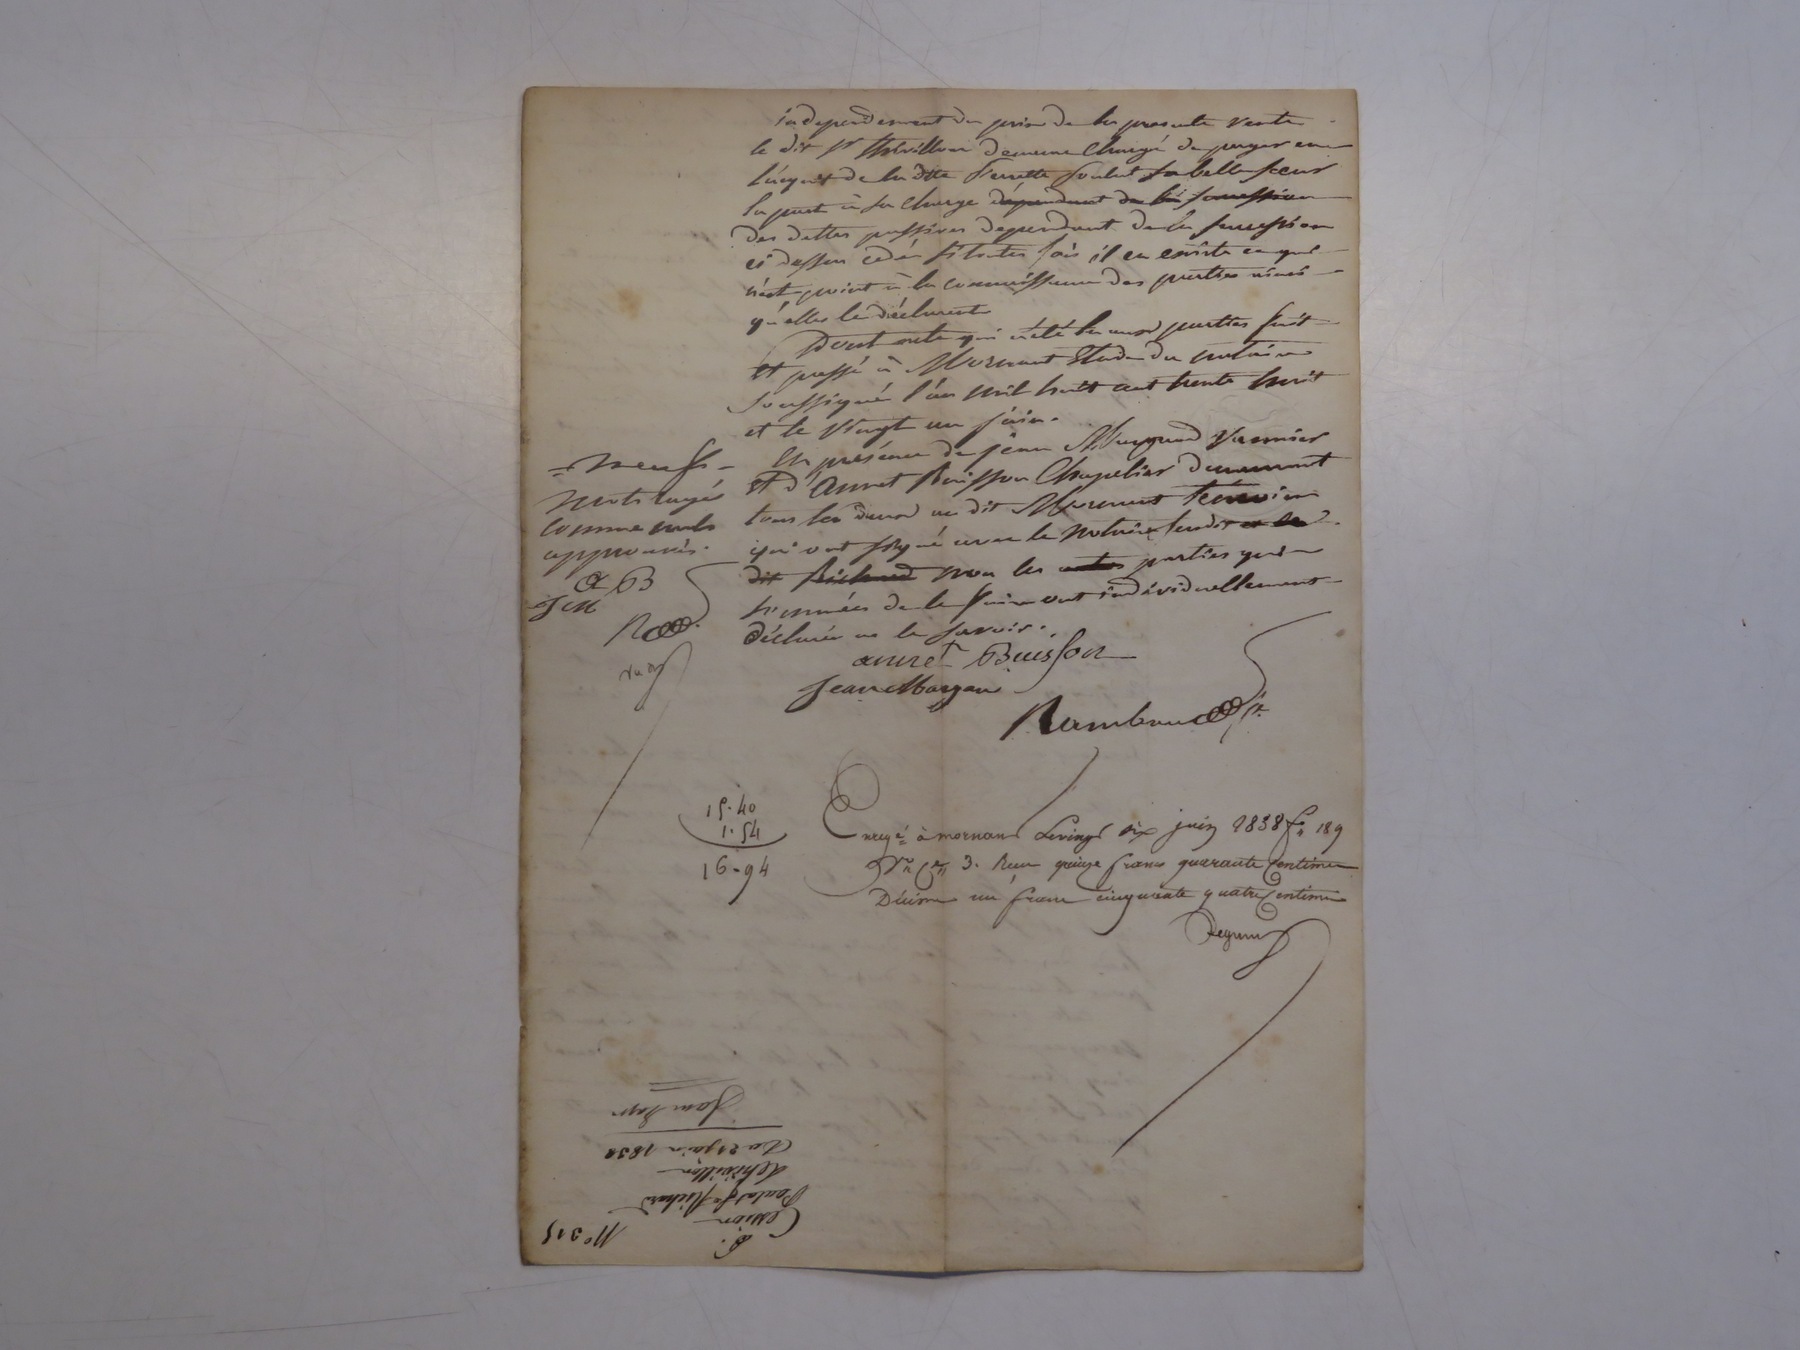 independement du prix de la presente vente
le dit Sr Thivillon demeure chargé de payer en
l'acquit de la dtte Pierrette Poulat sa belle soeur
la part à sa charge dépendant de la succession
des dettes passives dependant de la succession
ci dessus cédée si toutes fois il en existe ce qui
n'est point à la connaissance des parties ainsi
qu'elles le déclarent
Dont acte qui a été lu aux parties fait
et passé à Mornant Etude du notaire
soussigné l'an mil huit cent trente huit
et le vingt un juin.
En présence de jean Margand
et d'Annet Buisson Chapelier demeurant
tous les deux au dit Mornant témoins
qui ont signé avec le notaire et le
dit Richard non les parties qui
sommées de le faire ont individuellement
déclaré ne le savoir.
= neuf =
mots rayés
comme nuls
approuvés.
a B
J M
R
annet Buisson
Jean Margan
Rambaud
15.40
1.54
16.94
Enregé à mornant le vingt six juin 1838 fo 189
Vo Ces 3. Reçu quinze francs quarante Centimes
Décime un franc cinquante quatre Centimes
No 315
Cession
Poulat fe Richard
à Thivillon
Du 21 juin 1838